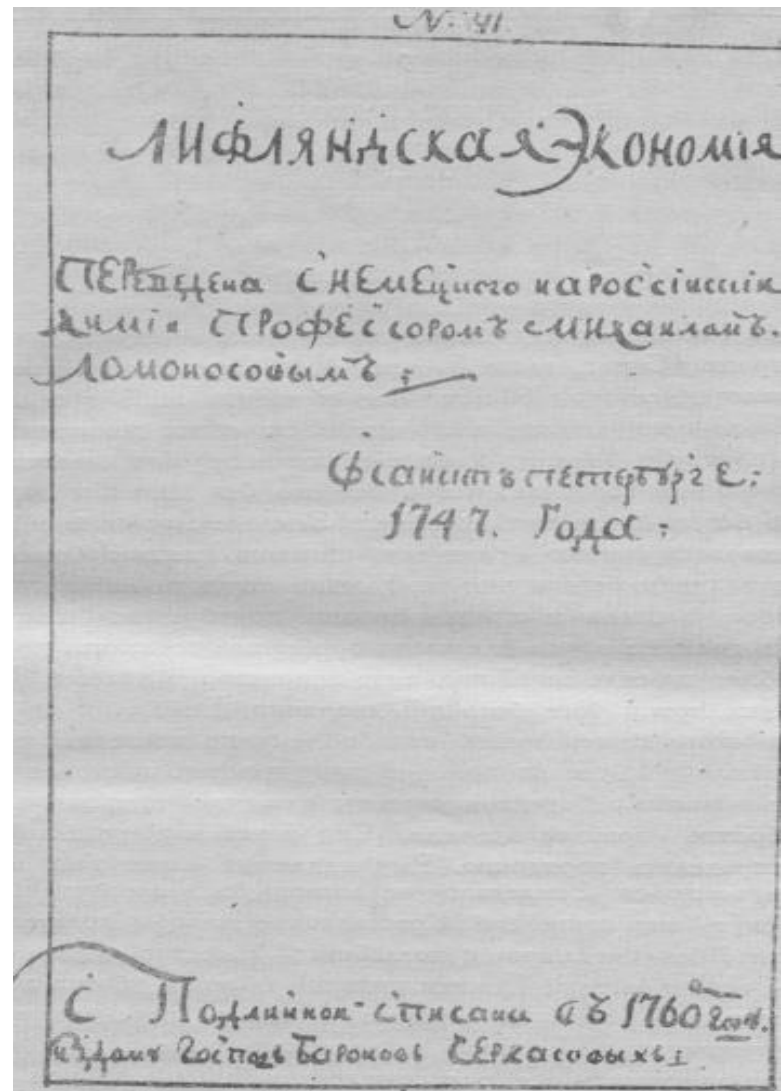 N. 41.
Лифляндская Экономія
Переведена с немецкого на россіискии
химіи Профессоромъ Михаиломъ.
Ломоносовымъ:
Въ санктъ петербурге:
1747. Года:
С Подлинной списана въ 1760 году.
въ домѣ Господъ Бароновъ Черкасовыхъ